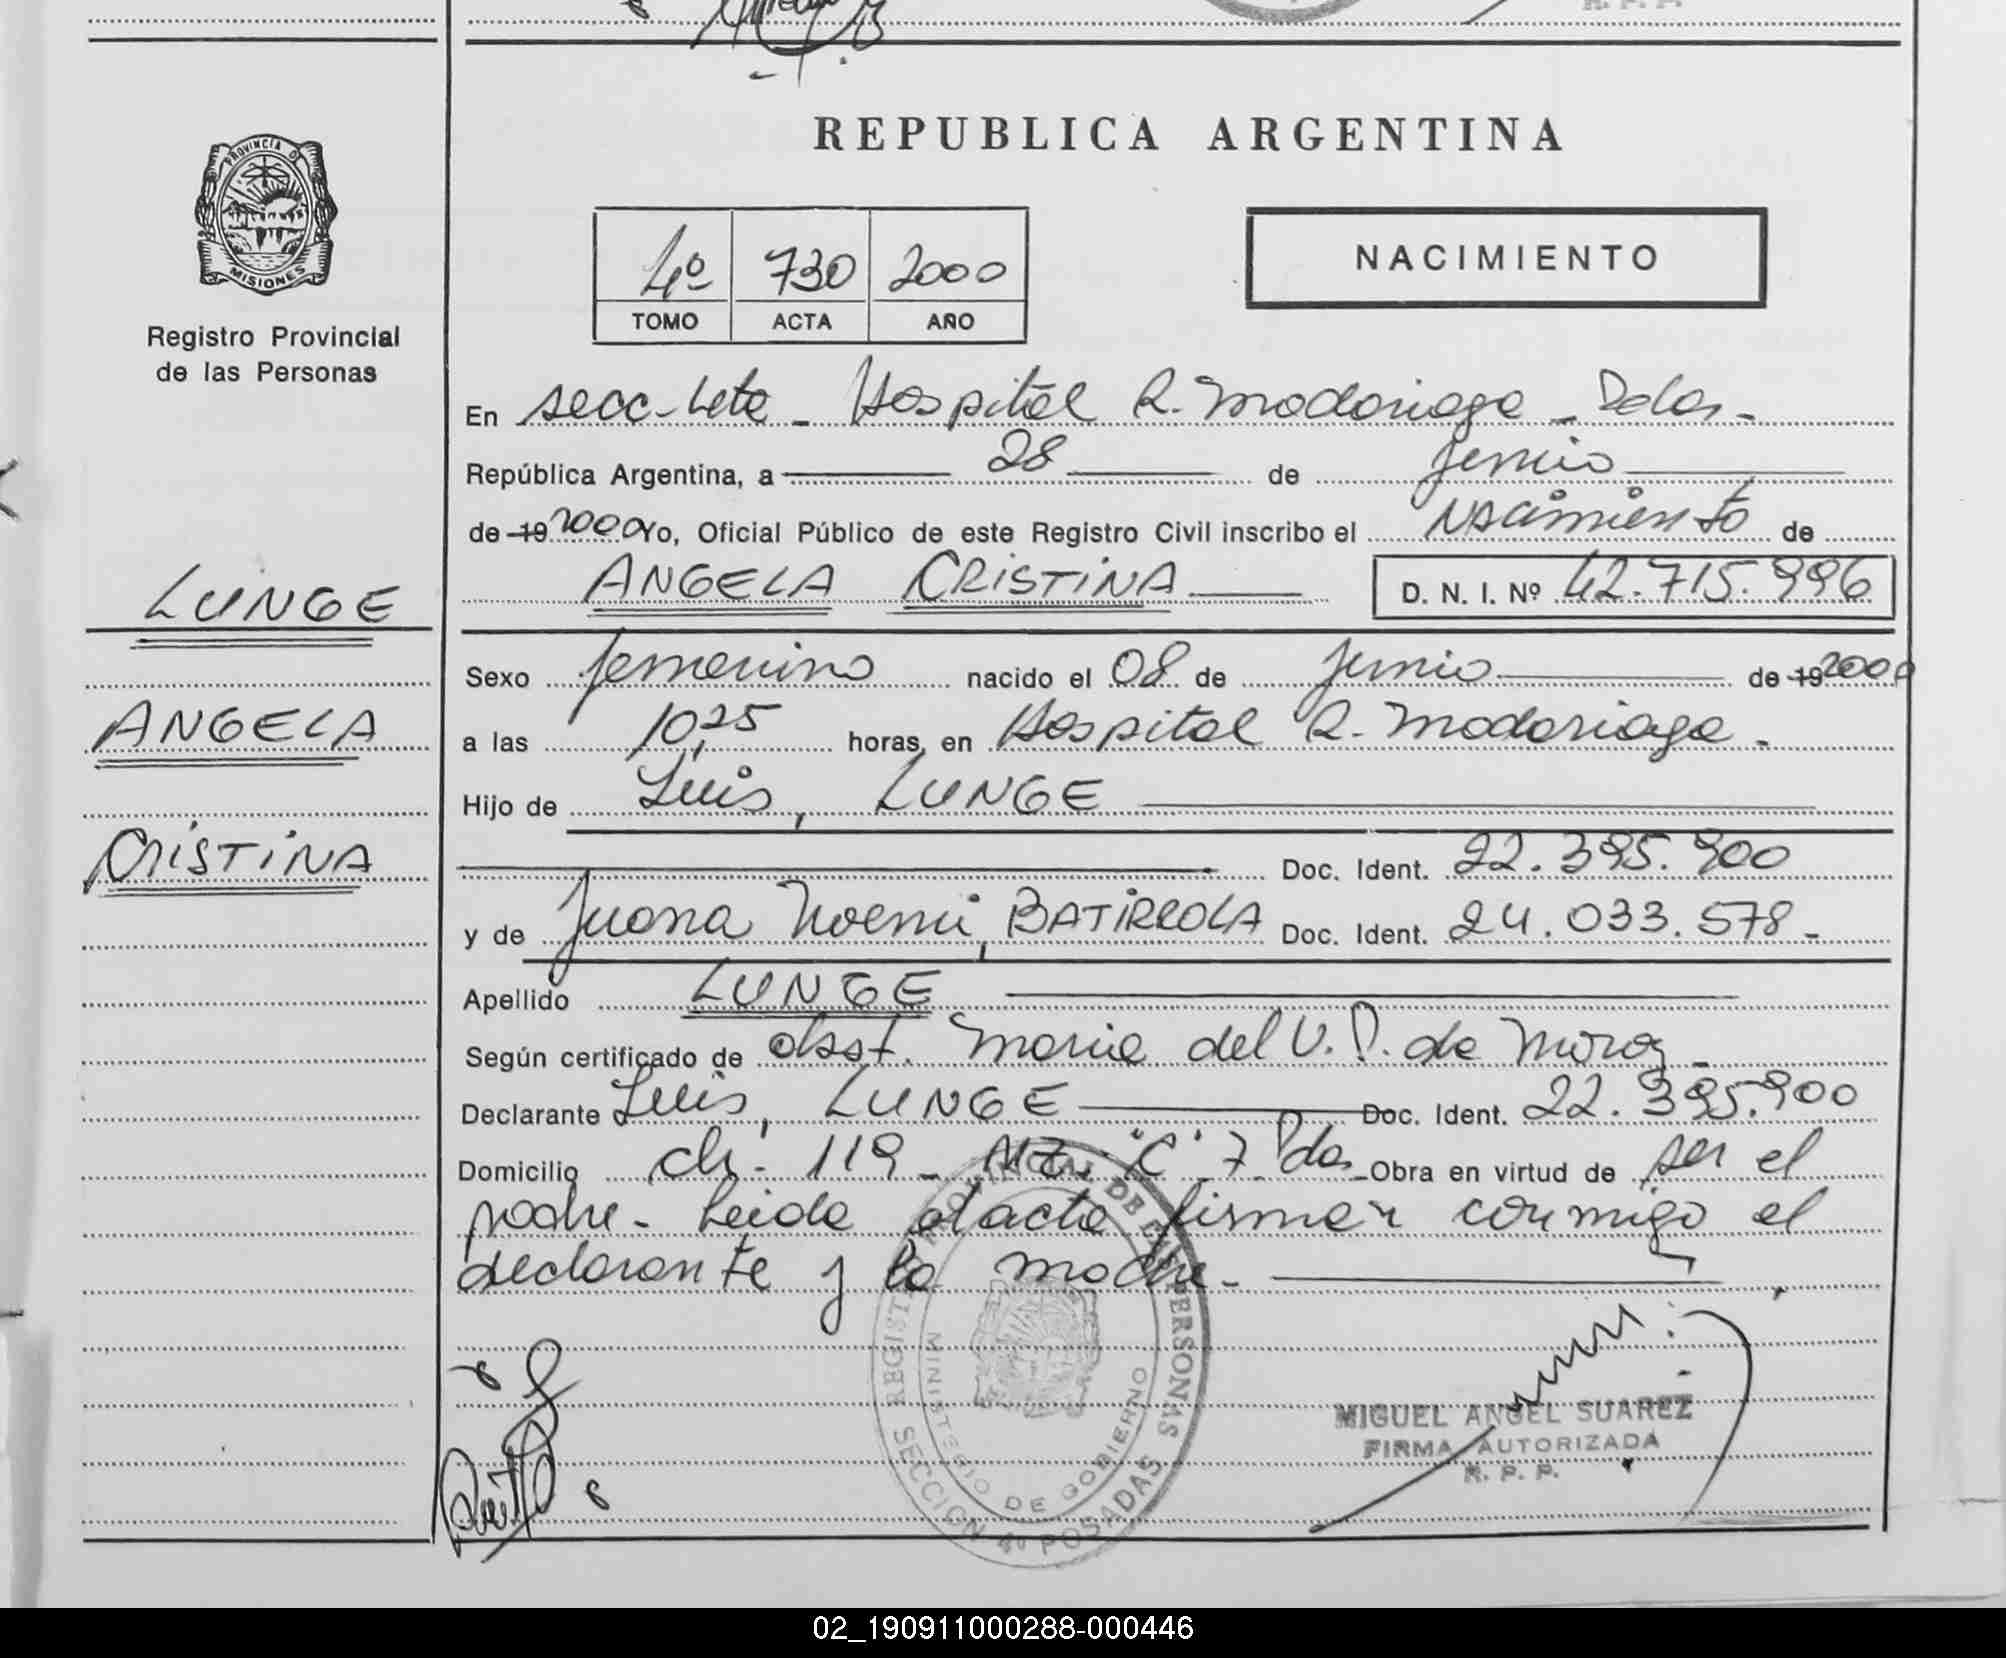 REPUBLICA ARGENTINA
PROVINCIA D
MISIONES
Registro Provincial
de las Personas
4º 730 2000
TOMO ACTA AÑO
NACIMIENTO
En secc. Hospital R. Madariaga - Pdas.
República Argentina, a 28 de junio
de 19 2000 Yo, Oficial Público de este Registro Civil inscribo el Nacimiento de
ANGELA CRISTINA D. N. I. Nº 42.715.996
LUNGE
ANGELA
CRISTINA
Sexo femenino nacido el 08 de junio de 19 2000
a las 10,25 horas, en Hospital R. Madariaga.
Hijo de Luis, LUNGE
Doc. Ident. 22.395.900
y de Juana Noemi, BATIRROLA Doc. Ident. 24.033.578.
Apellido LUNGE
Según certificado de obst. Maria del V. P. de
Declarante Luis, LUNGE Doc. Ident. 22.395.900
Domicilio ch. 119 - MZ. "C" 7 Pdas. Obra en virtud de ser el
padre. Leida el acta firman conmigo el
declarante y la madre.
REGISTRO PROVINCIAL DE LAS PERSONAS
MINISTERIO DE GOBIERNO
SECCION 4º POSADAS
MIGUEL ANGEL SUAREZ
FIRMA AUTORIZADA
R. P. P.
02_190911000288-000446